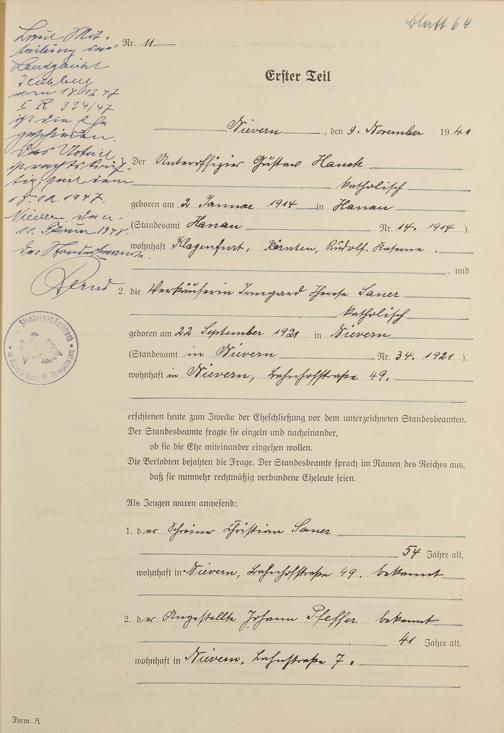 Blatt 64
Laut Mit-
teilung des
Landgericht
vom 18.12.47
2 R 324/47
ist die Ehe
geschieden.
Das Urteil
ist rechtskräf-
tig seit dem
18.12.1947.
Nievern, den
11. 1948.
Der Standesbeamte
Nr. 11
Erster Teil
Nievern, den 9. November 1941
1. Der Unteroffizier Gustav Hauck
katholisch
geboren am 2. Januar 1914 in Hanau
(Standesamt Hanau Nr. 14. 1914).
wohnhaft Klagenfurt, Kärnten, Rudolf Kaserne.
, und
2. die Verkäuferin Irmgard Therese Saner
katholisch
geboren am 22 September 1921 in Nievern
(Standesamt in Nievern Nr. 34. 1921).
wohnhaft in Nievern, Bahnhofstraße 49.
erschienen heute zum Zwecke der Eheschließung vor dem unterzeichneten Standesbeamten.
Der Standesbeamte fragte sie einzeln und nacheinander,
ob sie die Ehe miteinander eingehen wollen.
Die Verlobten bejahten die Frage. Der Standesbeamte sprach im Namen des Reiches aus,
daß sie nunmehr rechtmäßig verbundene Eheleute seien.
Als Zeugen waren anwesend:
1. der Schreiner Christian Saner
54 Jahre alt,
wohnhaft in Nievern, Bahnhofstraße 49. bekannt
2. der Angestellte Johann Pfeffer bekannt
41 Jahre alt,
wohnhaft in Nievern, Lahnstraße 7.
Form. A